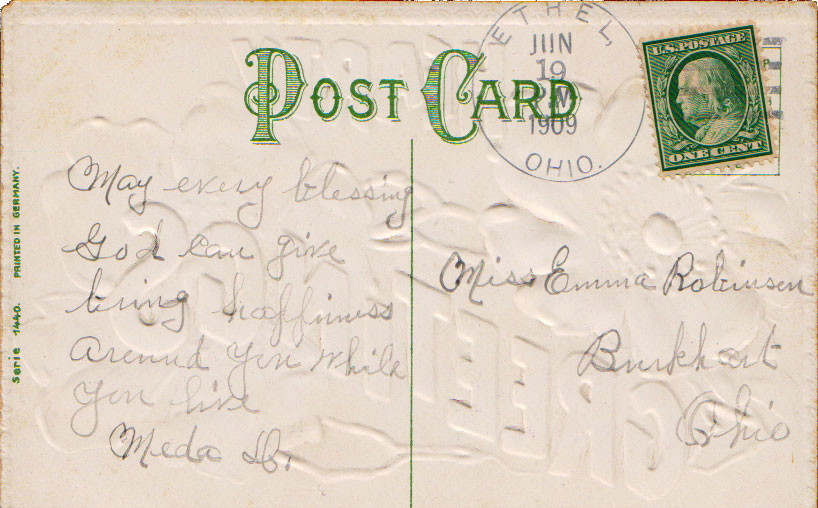 POST CARD
ETHEL,
JUN
19
M
1909
OHIO.
U.S. POSTAGE
ONE CENT
May every blessing
God can give
bring happiness
around you while
you live
Meda
Miss Emma Robinson
Burkhart
Ohio
Serie 1440. PRINTED IN GERMANY.
GREETINGS